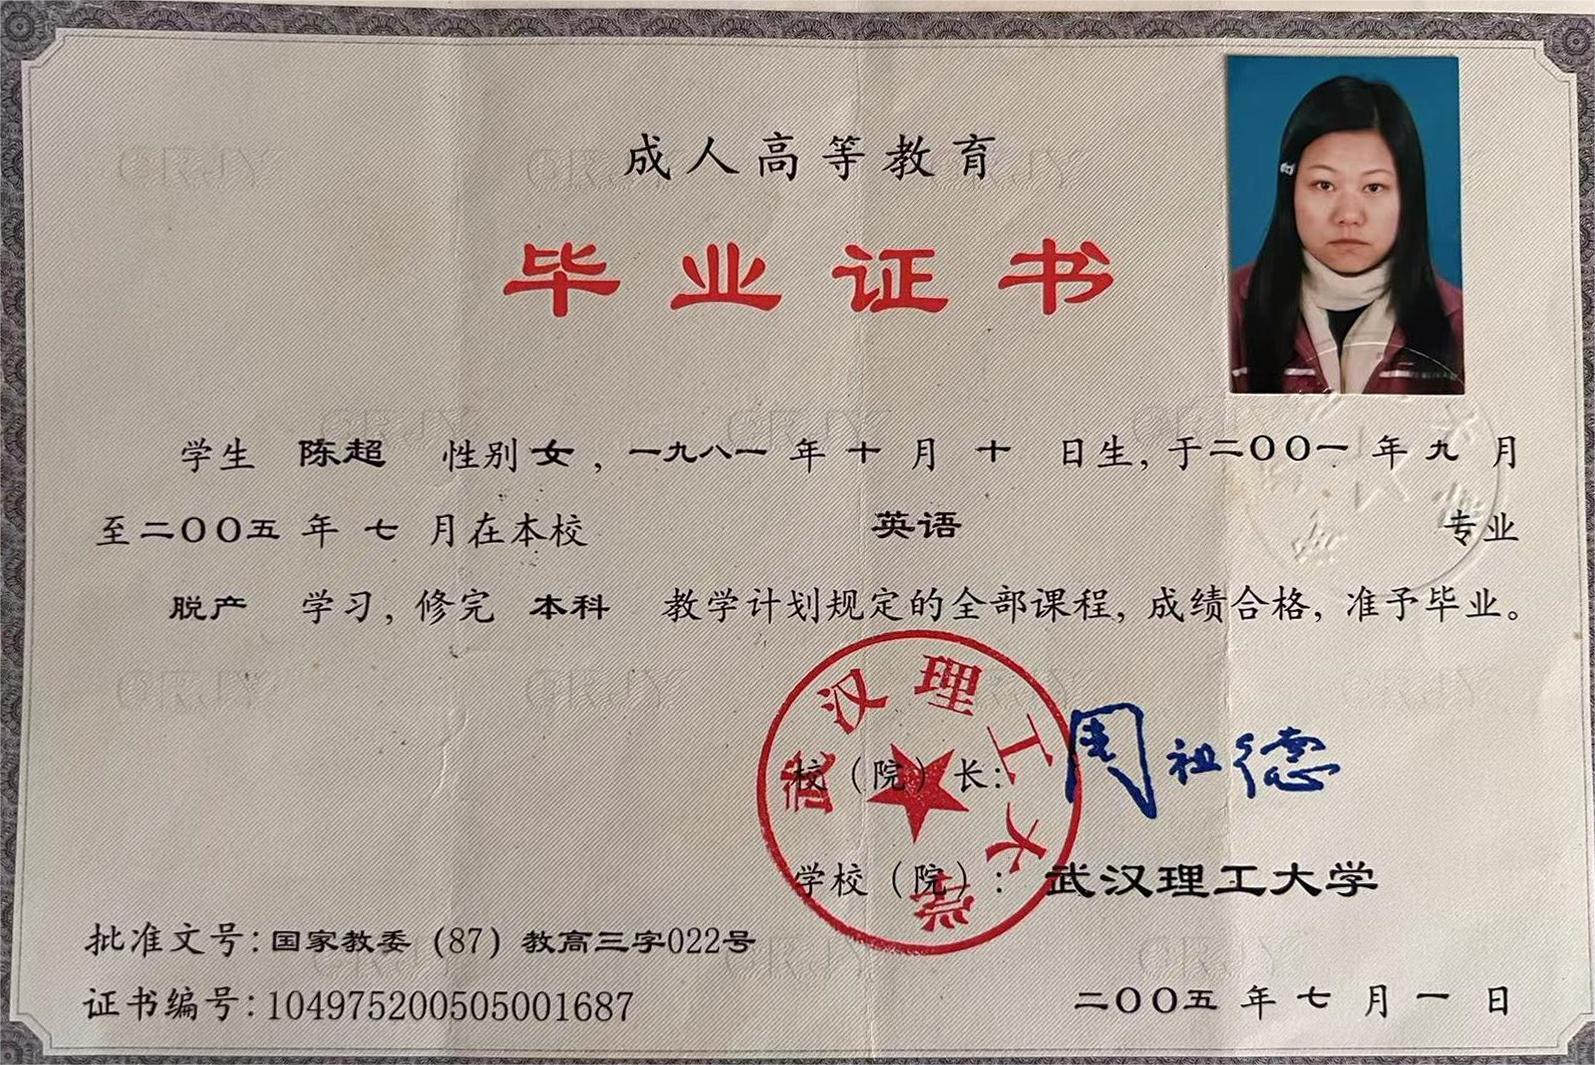 成人高等教育
毕业证书
学生 陈超 性别 女，一九八一 年 十 月 十 日生，于二〇〇一 年 九 月
至二〇〇五 年 七 月在本校 英语 专业
脱产 学习，修完 本科 教学计划规定的全部课程，成绩合格，准予毕业。
武汉理工大学
校（院）长：周祖德
学校（院）：武汉理工大学
批准文号：国家教委（87）教高三字022号
证书编号：104975200505001687
二〇〇五 年 七 月 一 日